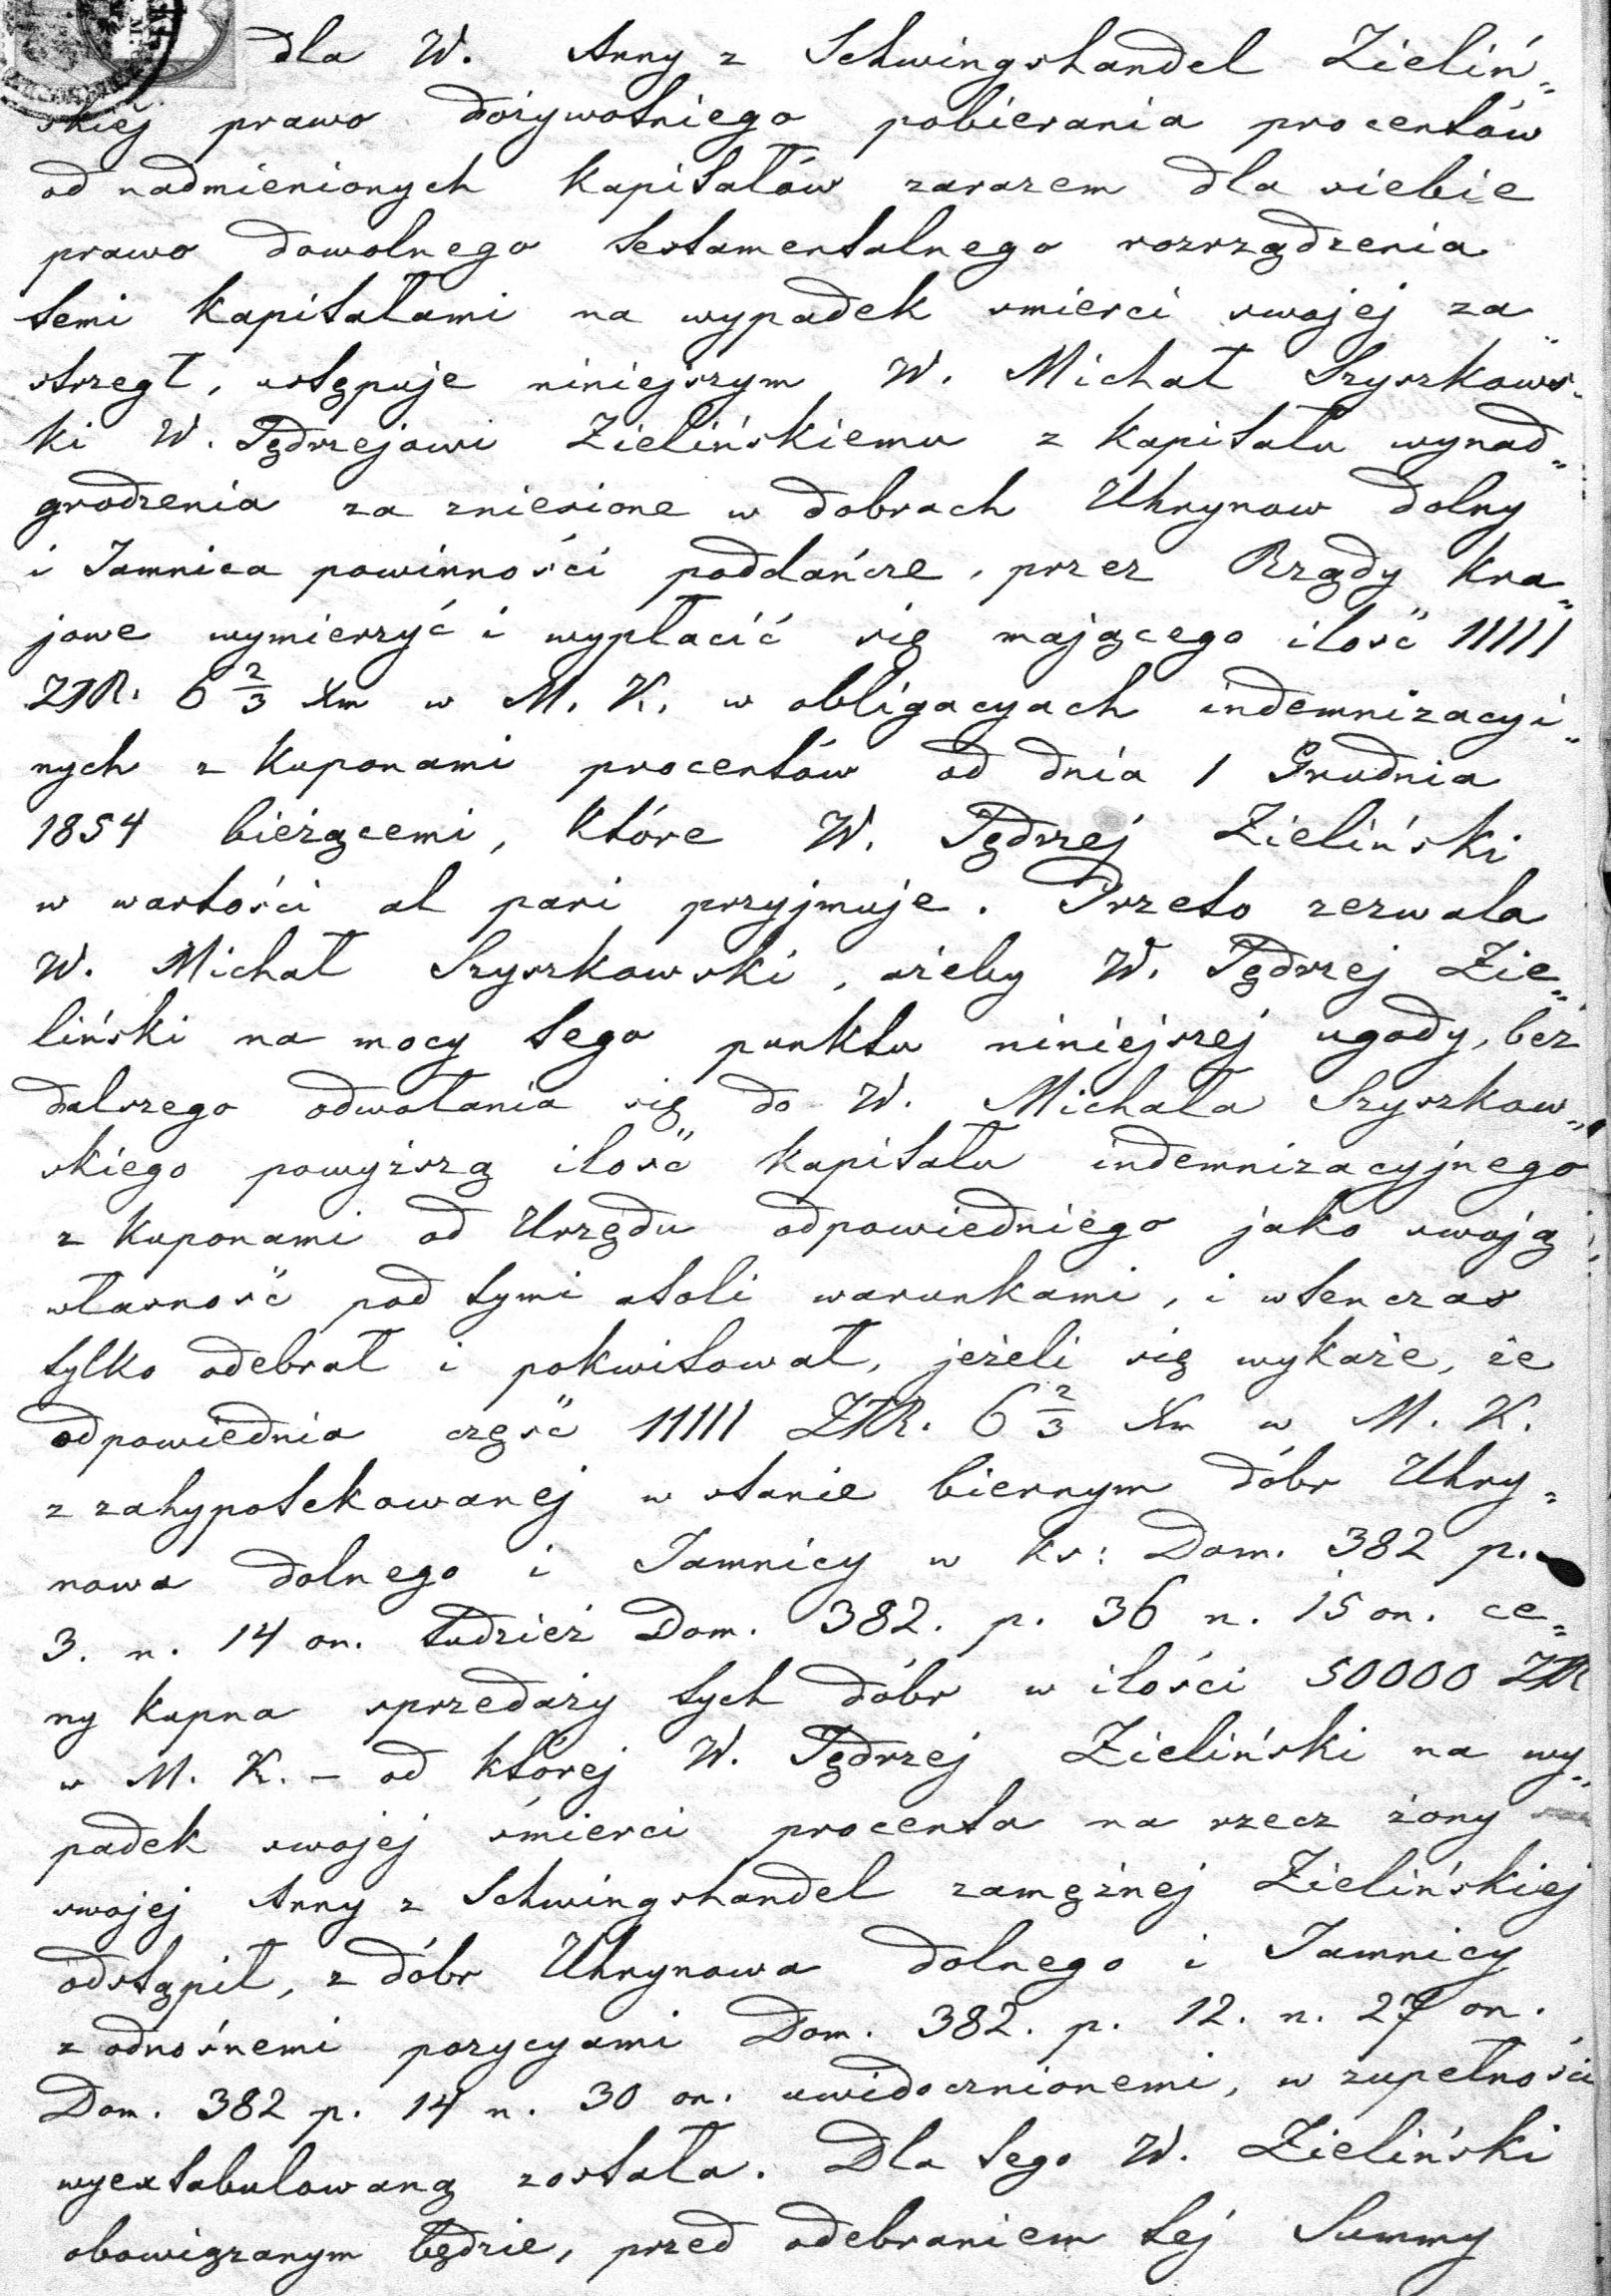 dla W. Anny z Schwingshandel Zieliń„
skiej prawo dożywotniego pobierania procentów
od nadmienionych kapitałów zarazem dla siebie
prawo dowolnego testamentalnego rozrządzenia
temi kapitałami na wypadek smierci swojej za„
strzegł, ustępuje niniejszym W. Michał Szyszkows„
ki W. Jędrzejowi Zielińskiemu z kapitału wynad„
grodzenia za zniesione w dobrach Uhrynow dolny
i Jamnica powinności poddańcze, przez Rządy kra„
jowe wymierzyć i wypłacić się mającego ilość 11111
ZłR. 6 2/3 Xm w M. K. w obligacyach indemnizacyi„
nych z kuponami procentów od dnia 1 Grudnia
1854 bieżącemi, które W. Jędrzej Zieliński
w wartości al pari przyjmuje. Przeto zezwala
W. Michał Szyszkowski, ażeby W. Jędrzej Zie„
liński na mocy tego punktu niniejszej ugody, bez
dalszego odwołania się do W. Michała Szyszkow„
skiego powyższą ilość kapitału indemnizacyjnego
z kuponami od Urzędu odpowiedniego jako swoją
własność pod tymi atoli warunkami, i wtenczas
tylko odebrał i pokwitował, jeżeli się wykaże, że
odpowiednia część 11111 ZłR. 6 2/3 Xm w M. K.
z zahypotekowanej w stanie biernym dóbr Uhry„
nowa dolnego i Jamnicy w ks: Dom. 382 p.
3. n. 14 on. tudzież Dom. 382. p. 36 n. 15 on. ce„
ny kupna sprzedaży tych dóbr w ilości 50000 ZłR
w M. K. – od której W. Jędrzej Zieliński na wy„
padek swojej śmierci procenta na rzecz żony
swojej Anny z Schwingshandel zamężnej Zielińskiej
odstąpił, z dóbr Uhrynowa dolnego i Jamnicy
z odnośnemi pozycyami Dom. 382. p. 12. n. 27 on.
Dom. 382 p. 14 n. 30 on. uwidocznionemi, w zupełności
wyextabulowaną została. Dla tego W. Zieliński
obowiązanym będzie, przed odebraniem tej Summy